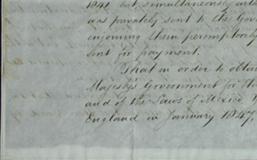 1841 but, simultaneously
was privately sent to the Gov
enjoining them peremptorily
not in payment.
That in order to obtai
Majesty's Government for the
and of the Laws of Mexico
England in January 1847,